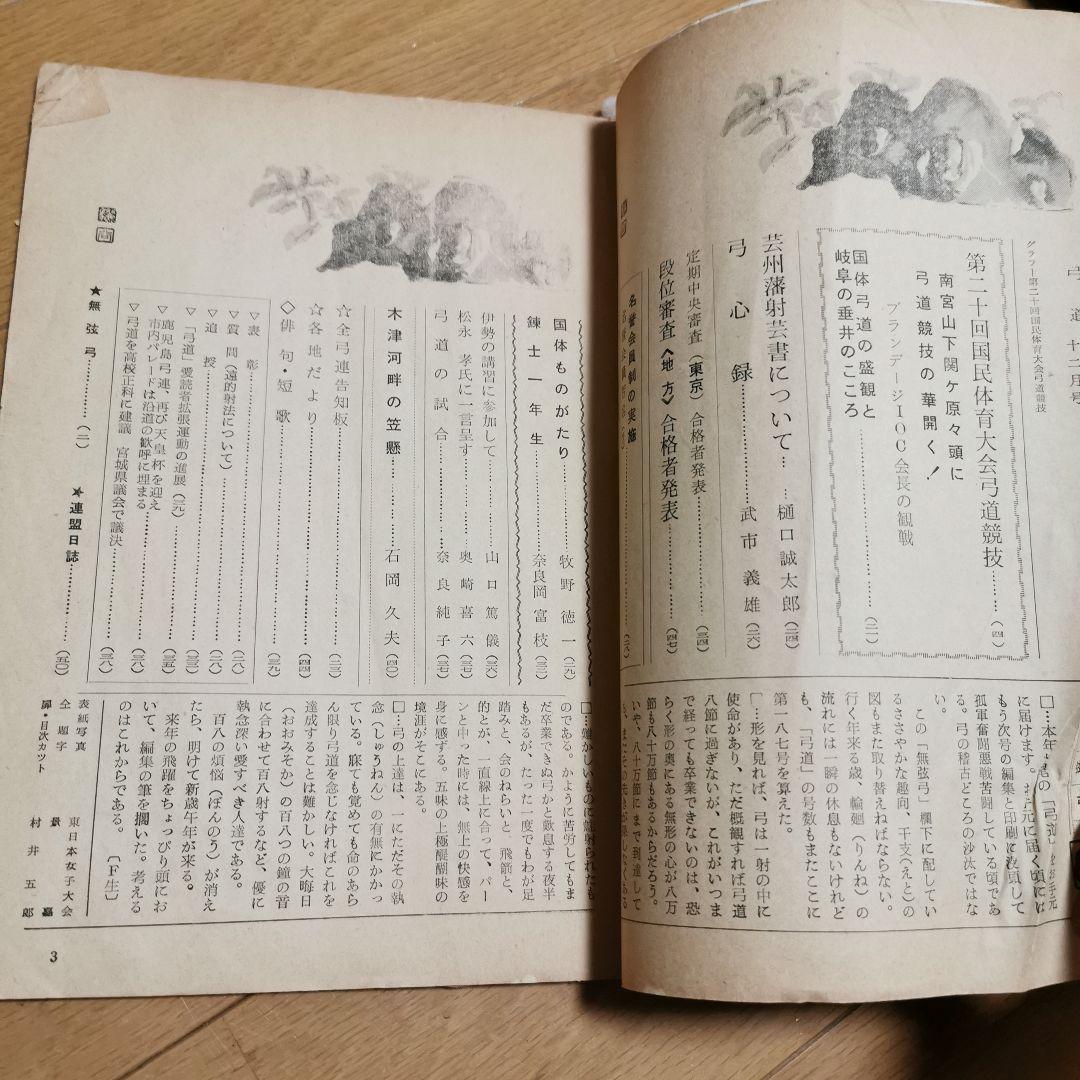 弓道十二月号
グラフー第二十回国民体育大会弓道競技
第二十回国民体育大会弓道競技……(四)
南宮山下関ケ原々頭に
弓道競技の華開く！
ブランデージIOC会長の観戦
国体弓道の盛観と
岐阜の垂井のこころ……(二一)
芸州藩射芸書について……樋口誠太郎(二四)
弓心録……武市義雄(二六)
定期中央審査(東京)合格者発表……(三四)
段位審査〈地方〉合格者発表……(四七)
名誉会員制の実施
国体ものがたり……牧野徳一(二九)
錬士一年生……奈良岡富枝(三二)
伊勢の講習に参加して……山口篤儀(三六)
松永孝氏に一言呈す……奥崎喜六(三七)
弓道の試合……奈良純子(三七)
木津河畔の笠懸……石岡久夫(四〇)
☆全弓連告知板……(二三)
☆各地だより……(四四)
◇俳句・短歌……(三九)
▽表彰……(二八)
▽質問(遠的射法について)……(二八)
▽追授……(三三)
▽「弓道」愛読者拡張運動の進展(三九)……(三五)
▽鹿児島弓連、再び天皇杯を迎え
市内パレードは沿道の歓呼に埋まる……(三八)
▽弓道を高校正科に建議 宮城県議会で議決……(三八)
★無弦弓……(二)
★連盟日誌……(五〇)
に届けます。お手元に届く頃には
もう次号の編集と印刷に没頭して
孤軍奮闘悪戦苦闘している頃であ
る。弓の稽古どころの沙汰ではな
い。
この「無弦弓」欄下に配してい
るささやかな趣向、干支(えと)の
図もまた取り替えねばならない。
行く年来る歳、輪廻(りんね)の
流れには一瞬の休息もないけれど
も、「弓道」の号数もまたここに
第一八七号を算えた。
□…形を見れば、弓は一射の中に
使命があり、ただ概観すれば弓道
八節に過ぎないが、これがいつま
で経っても卒業できないのは、恐
らく形の奥にある無形の心が八万
節も八十万節もあるからだろう。
いや、八十万節にまで到達して
のである。かように苦労してもま
だ卒業できぬ弓かと歎息する夜半
もあるが、たった一度でもわが足
踏みと、会のねらいと、飛箭と、
的とが、一直線上に合って、パー
ンと中った時には、無上の快感を
身に感ずる。五味の上極醍醐味の
境涯がそこにある。
□…弓の上達は、一にただその執
念(しゅうねん)の有無にかかっ
ている。寐ても覚めても命のあら
ん限り弓道を念じなければこれを
達成することは難かしい。大晦日
(おおみそか)の百八つの鐘の音
に合わせて百八射するなど、優に
執念深い愛すべき人達である。
百八の煩悩(ぼんのう)が消え
たら、明けて新歳午年が来る。
来年の飛躍をちょっぴり頭にお
いて、編集の筆を擱いた。考える
のはこれからである。〔F生〕
表紙写真 東日本女子大会
仝題字
扉・目次カット 村井五郎
3